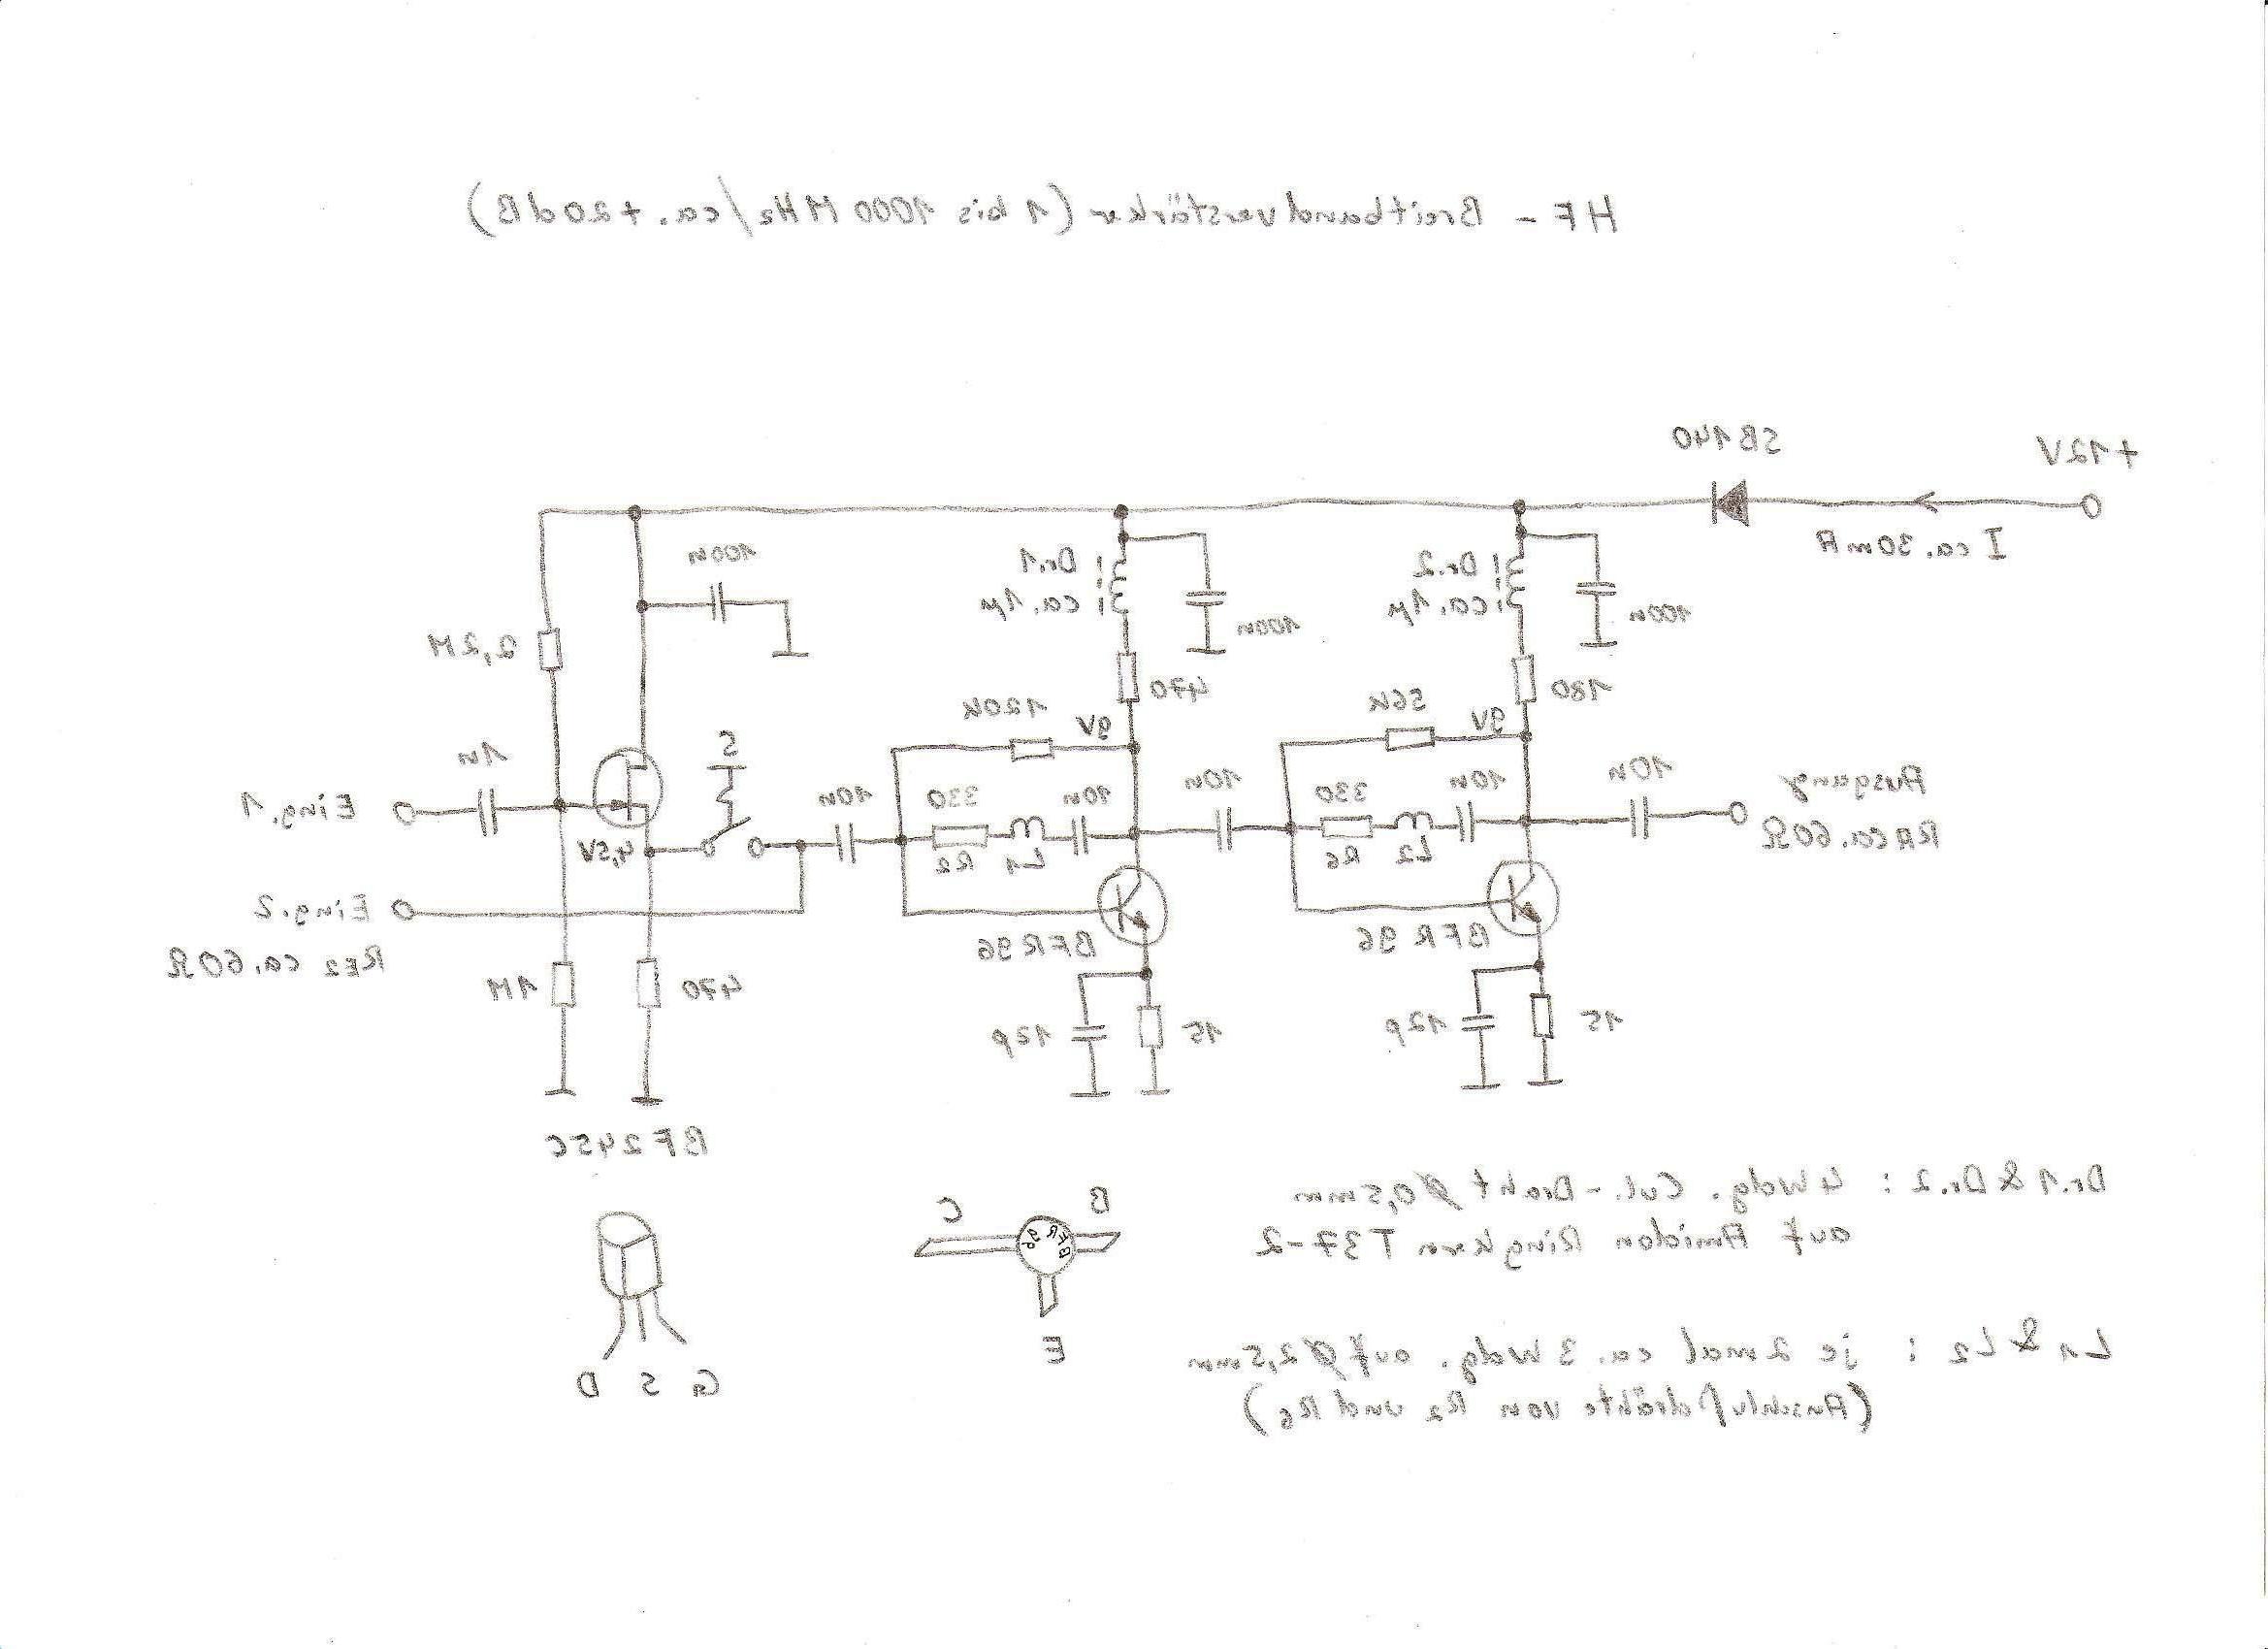 HF - Breitbandverstärker (1 bis 1000 MHz/ca. +20dB)
+12V
SB140
I ca. 30mA
100n
Dr.2
ca. 1µ
100n
Dr.1
ca. 1µ
100n
2,2M
180
56k
9V
470
120k
9V
S
1n
Ausgang
RA ca. 60Ω
10n
10n
L2
330
R6
10n
10n
L1
330
R2
10n
4,5V
Eing. 1
Eing. 2
RE2 ca. 60Ω
BFR 96
BFR 96
15
12p
15
12p
470
1M
BF 245C
G S D
B
C
E
BFR
96
Dr.1 & Dr.2 : 4 Wdg. CuL-Draht ø 0,5mm
auf Amidon Ringkern T37-2
L1 & L2 : je 2 mal ca. 3 Wdg. auf ø 2,5mm
(Anschlußdrähte von R2 und R6)